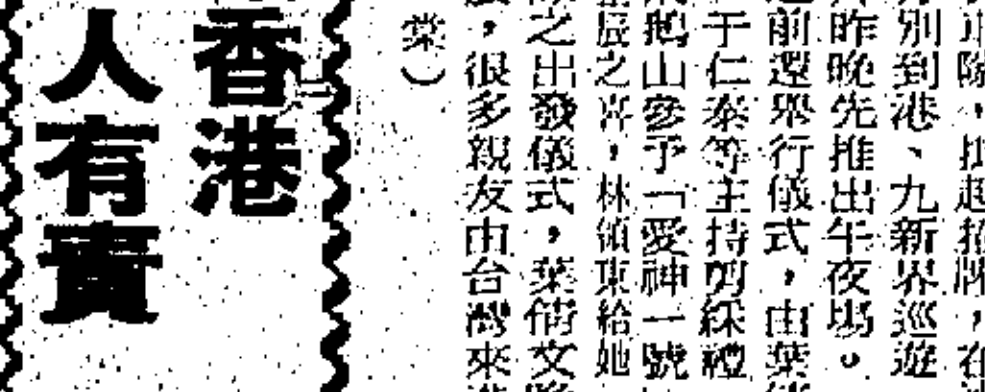 隊，扛起招牌，在
別到港、九新界巡遊
昨晚先推出午夜場。
前還舉行儀式，由葉
于仁泰等主持剪綵禮
鵝山參予「愛神一號
辰之喜，林領東給她
之出發儀式，葉倩文
，很多親友由台灣來
棠）
香港
人有責